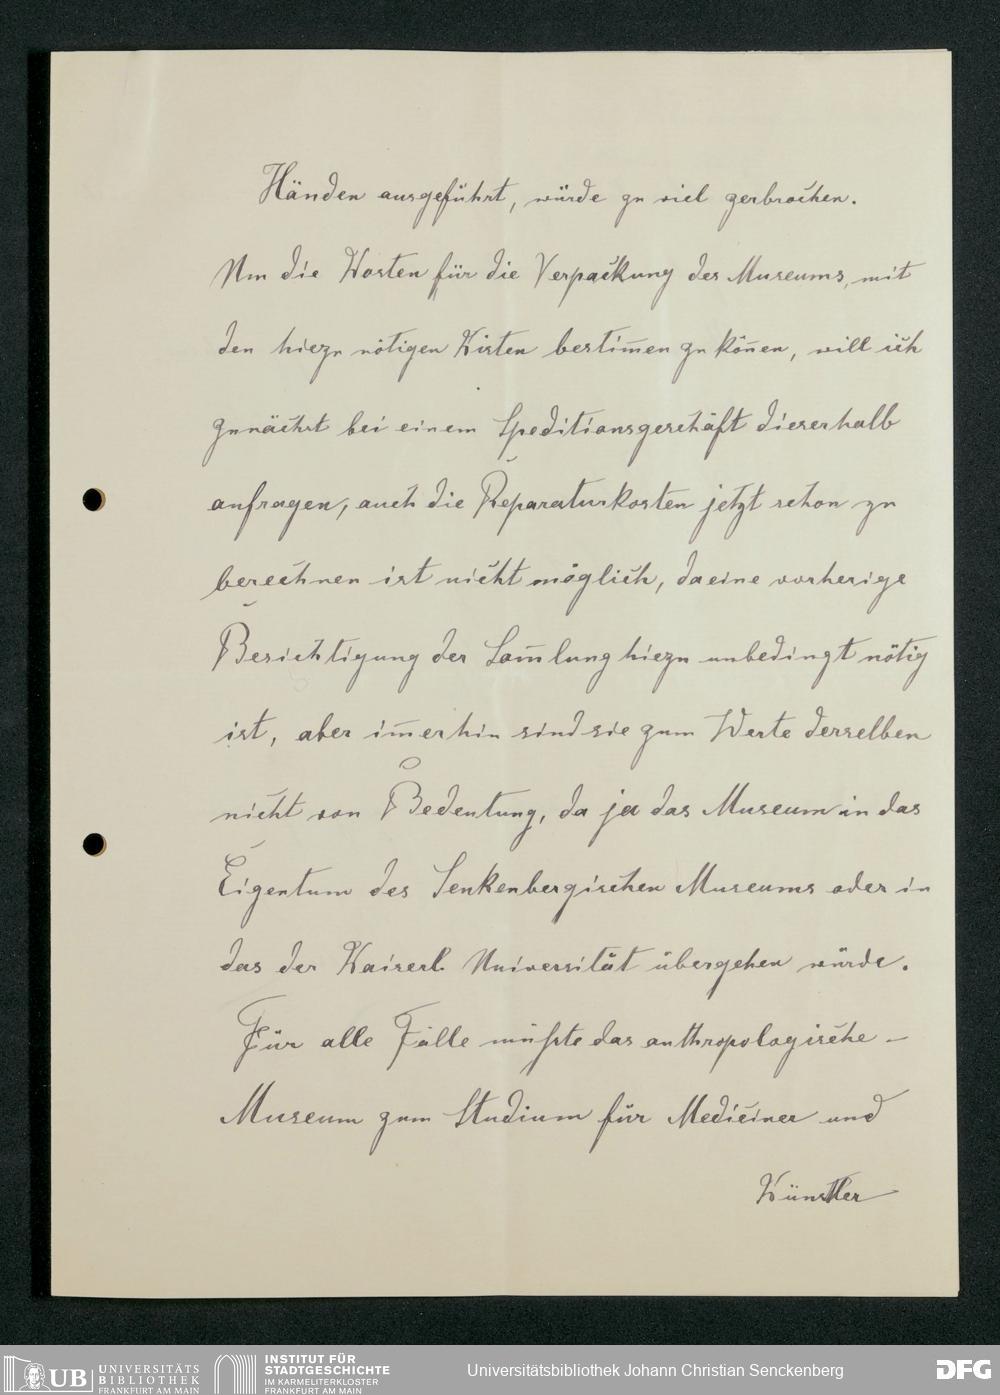 Händen ausgeführt, würde zu viel zerbrochen.
Um die Kosten für die Verpackung des Museums, mit
den hiezu nötigen Kisten bestim̅en zu kön̅en, will ich
zunächst bei einem Speditionsgeschäft dieserhalb
anfragen, auch die Reparaturkosten jetzt schon zu
berechnen ist nicht möglich, da eine vorherige
Besichtigung der Sam̅lung hiezu unbedingt nötig
ist, aber im̅erhin sind sie zum Werte derselben
nicht von Bedeutung, da ja das Museum in das
Eigentum des Senkenbergischen Museums oder in
das der Kaiserl. Universität übergehen würde.
Für alle Fälle müsste das anthropologische –
Museum zum Studium für Mediciner und
Künstler
UB UNIVERSITÄTS
BIBLIOTHEK
FRANKFURT AM MAIN
INSTITUT FÜR
STADTGESCHICHTE
IM KARMELITERKLOSTER
FRANKFURT AM MAIN
Universitätsbibliothek Johann Christian Senckenberg
DFG